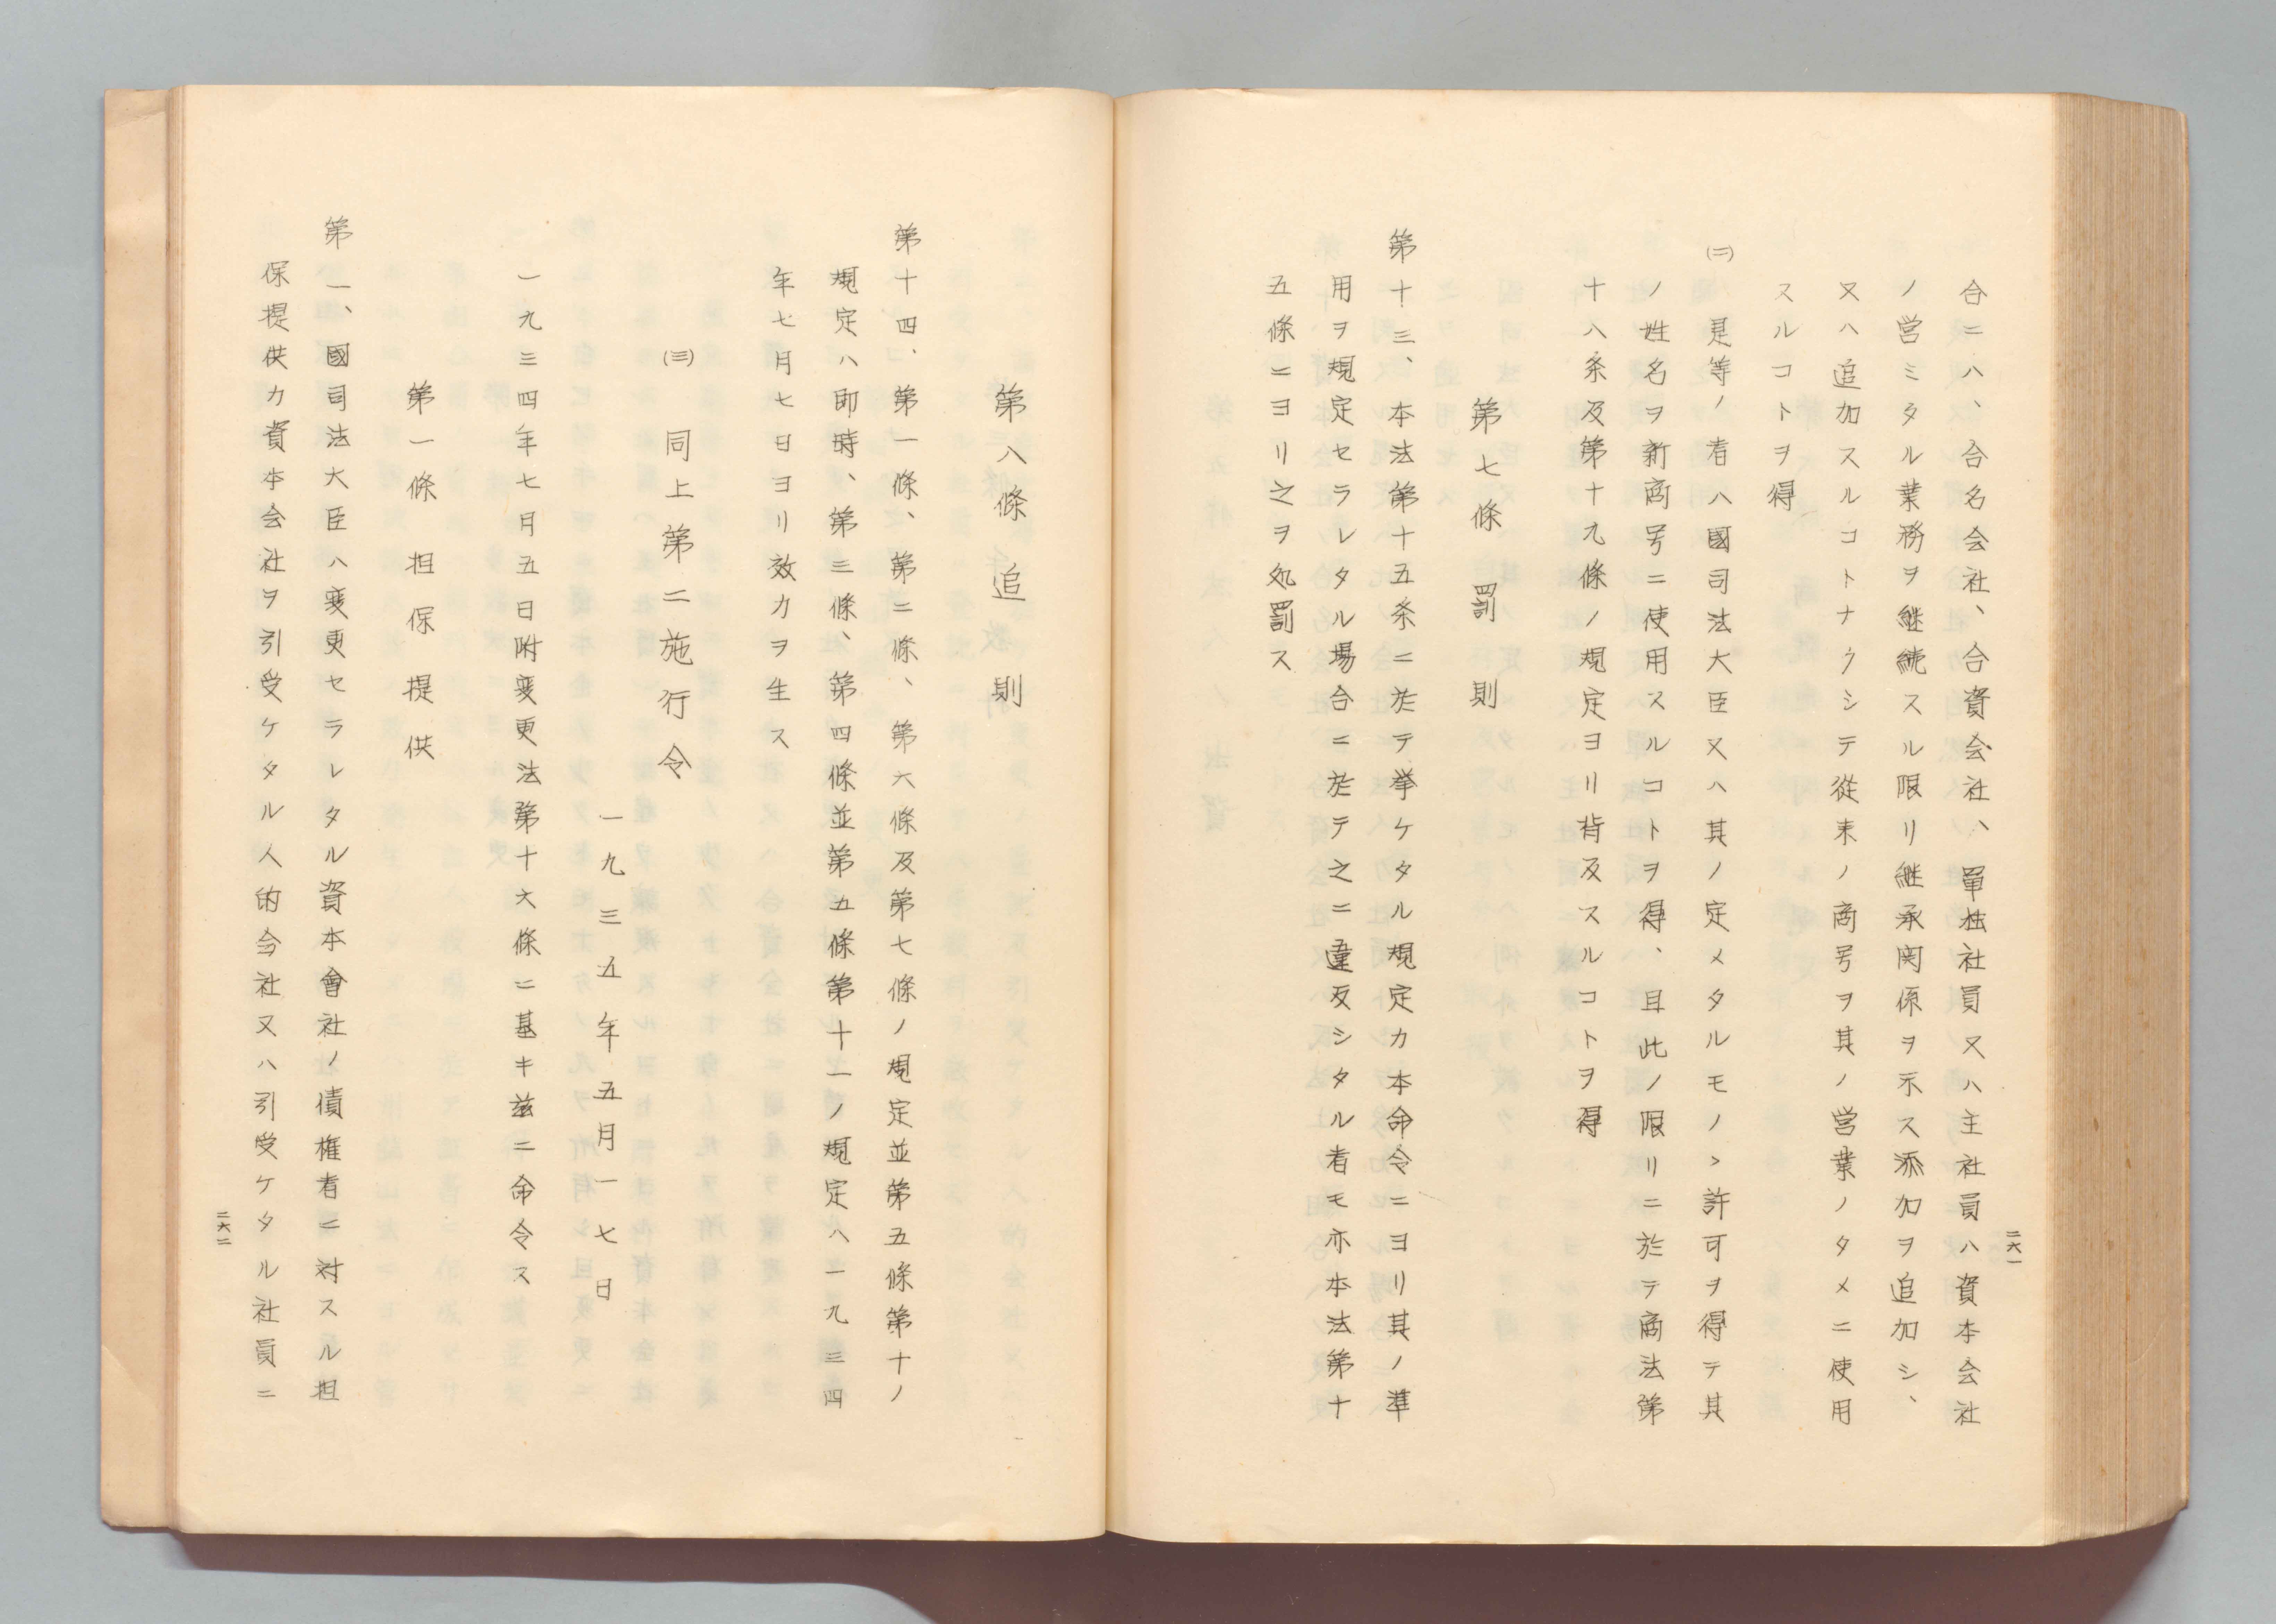 合ニハ、合名会社、合資会社、單独社員又ハ主社員ハ資本会社
ノ営ミタル業務ヲ継続スル限リ継承関係ヲ示ス添加ヲ追加シ、
又ハ追加スルコトナクシテ從来ノ商号ヲ其ノ営業ノタメニ使用
スルコトヲ得
(二)是等ノ者ハ國司法大臣又ハ其ノ定メタルモノヽ許可ヲ得テ其
ノ姓名ヲ新商号ニ使用スルコトヲ得、且此ノ限リニ於テ商法第
十八条及第十九條ノ規定ヨリ背反スルコトヲ得
第七條 罰則
第十三、本法第十五条ニ於テ挙ケタル規定カ本命令ニヨリ其ノ準
用ヲ規定セラレタル場合ニ於テ之ニ違反シタル者モ亦本法第十
五條ニヨリ之ヲ処罰ス
二六一
第八條 追則
第十四、第一條、第二條、第六條及第七條ノ規定並第五條第十ノ
規定ハ即時、第三條、第四條並第五條第十一ノ規定ハ一九三四
年七月七日ヨリ效力ヲ生ス
(三) 同上第二施行令
一九三五年五月一七日
一九三四年七月五日附変更法第十六條ニ基キ茲ニ命令ス
第一條 担保提供
第一、國司法大臣ハ変更セラレタル資本會社ノ債権者ニ対スル担
保提供カ資本会社ヲ引受ケタル人的会社又ハ引受ケタル社員ニ
二六二